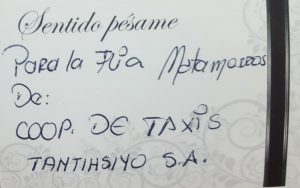 Sentido pésame
Para la Flia Matamoros
De:
COOP. DE TAXIS
TANTIHSIYO S.A.